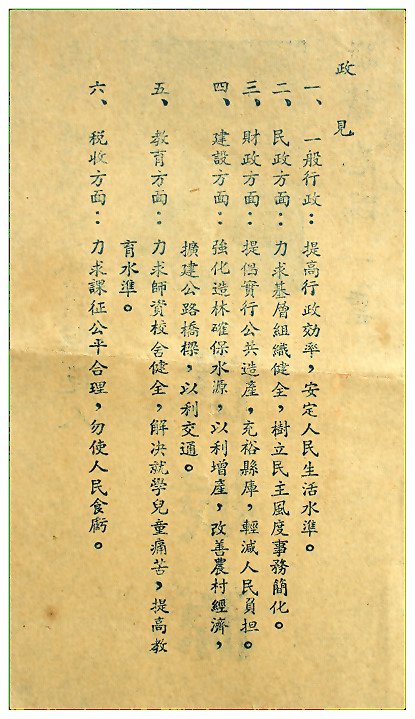 政見
一、一般行政：提高行政効率，安定人民生活水準。
二、民政方面：力求基層組織健全，樹立民主風度事務簡化。
三、財政方面：提倡實行公共造產，充裕縣庫，輕減人民負担。
四、建設方面：強化造林確保水源，以利增產，改善農村經濟，
擴建公路橋樑，以利交通。
五、教育方面：力求師資校舍健全，解决就學兒童痛苦，提高教
育水準。
六、稅收方面：力求課征公平合理，勿使人民食虧。